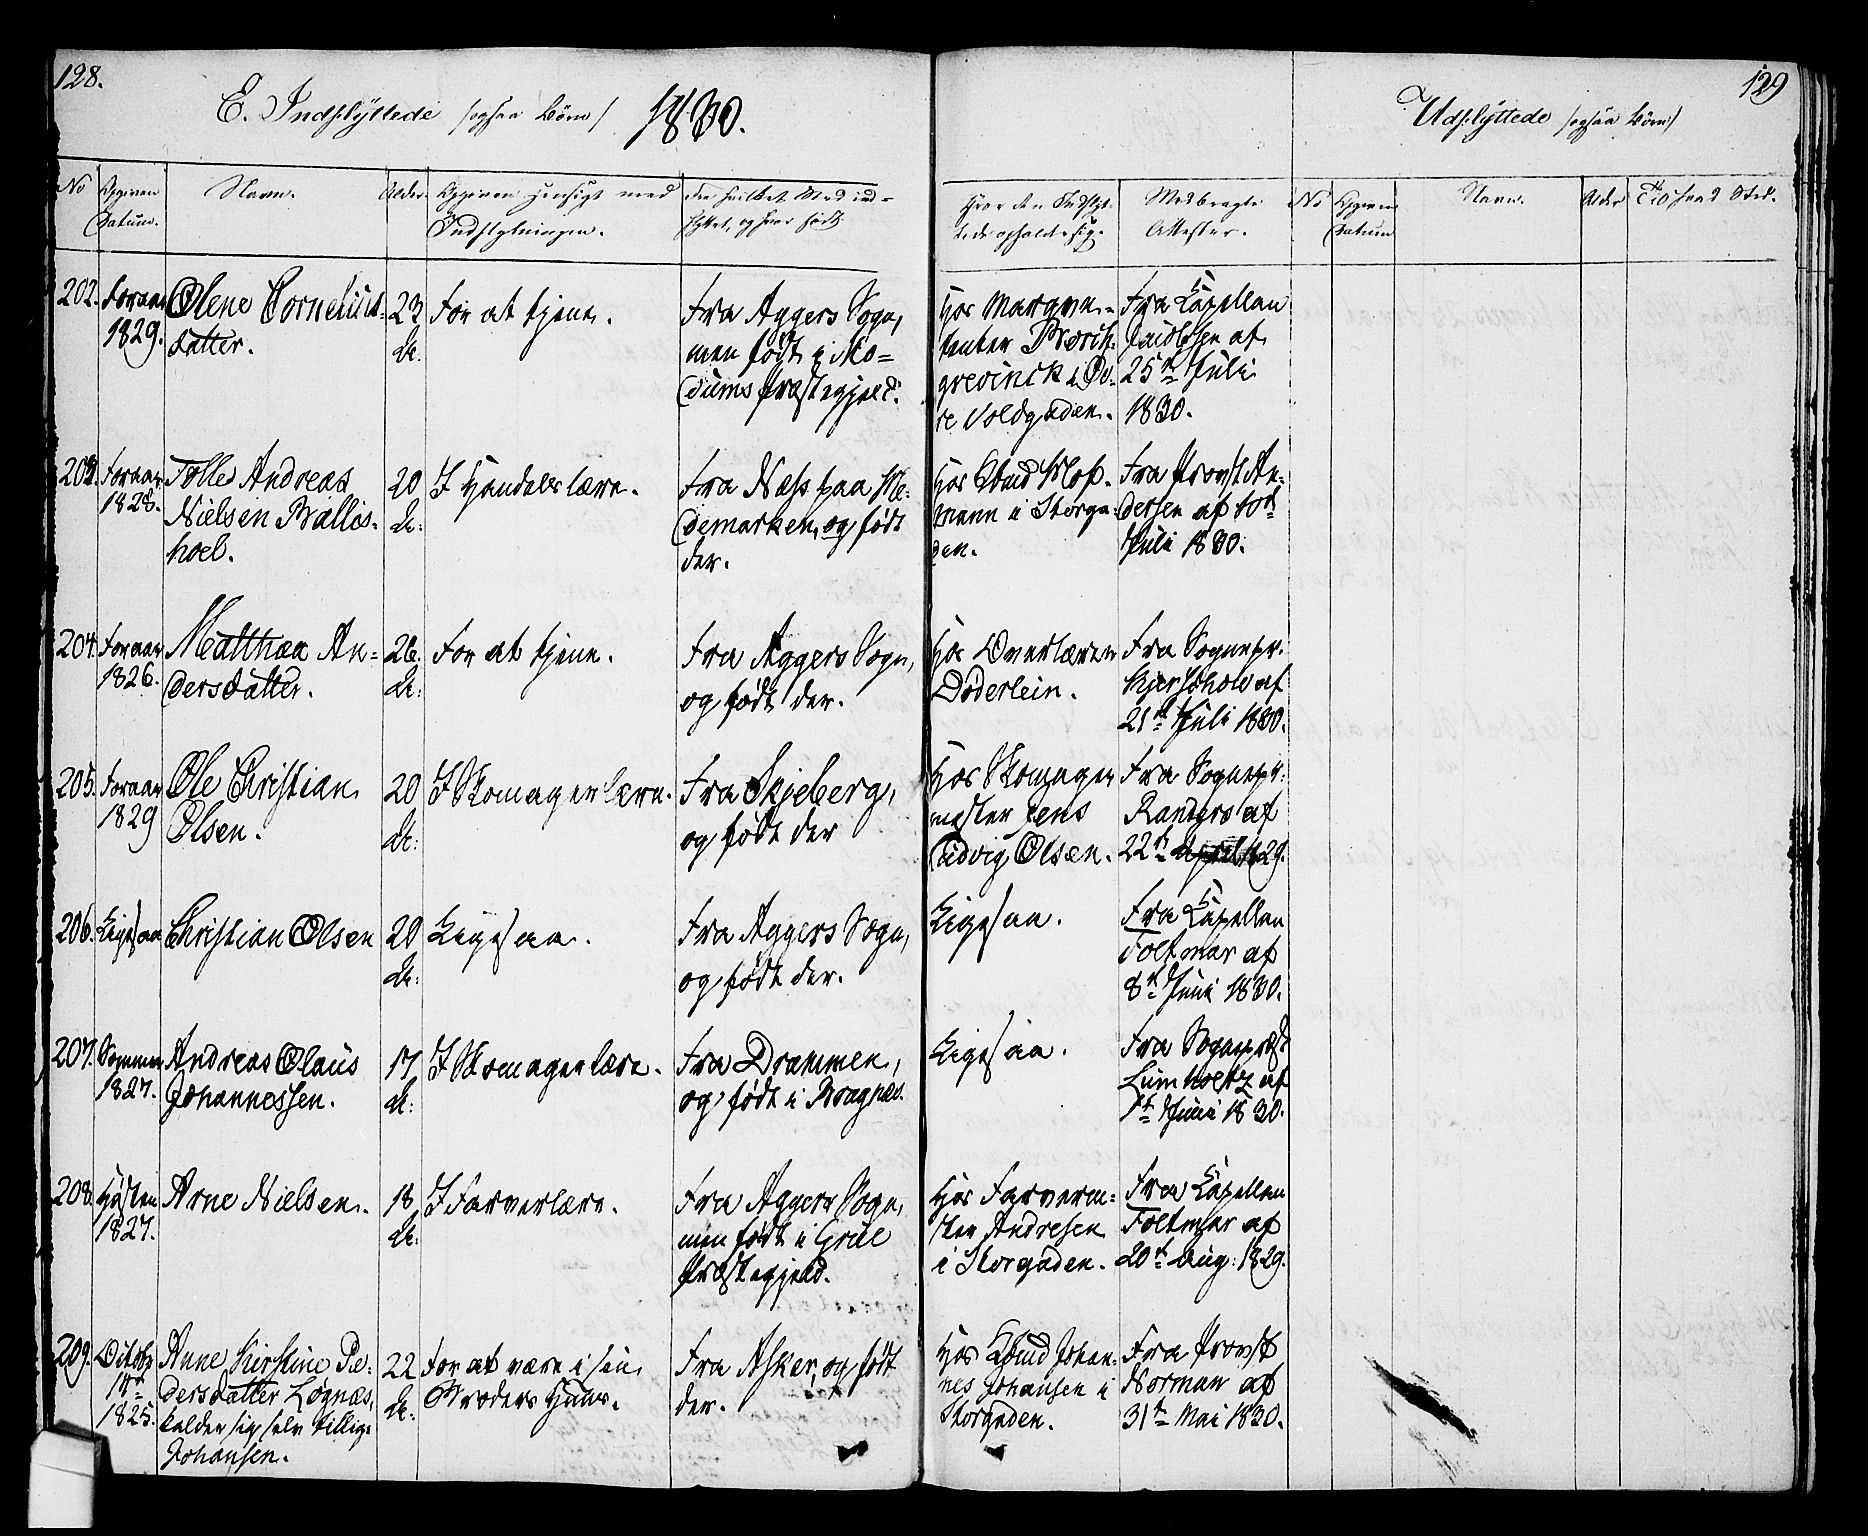 128.
E. Indflyttede /ogsaa Børn/ 1830.
No
Opgiven
Datum.
Navn.
Alder.
Opgiven Hensigt med
Indflytningen.
Fra hvilket Sted ind-
flyttet, og hvor født.
Hvor den Indflyt-
tede opholder sig.
Medbragte
Attester.
202.
Foraar
1829.
Olene Cornelius-
datter.
23
Ar.
For at tjene.
Fra Aggers Sogn,
men født i Mo-
dums Præstegjeld.
Hos Marqve-
tenter Borch-
grevinck i Øv-
re Voldgaden.
Fra Capellan
af
25de Juli
1830.
203.
Foraar
1828.
Tolles Andreas
Nielsen Ballis-
hoel.
20
Ar.
I Handelslære.
Fra Næss paa He-
demarken, og født
der.
Hos Klop-
mann i Storga-
den.
Fra Provst An-
dersen af 10de
Juli 1830.
204.
Foraar
1826.
Matthea An-
dersdatter.
26.
Ar.
For at tjene.
Fra Aggers Sogn,
og født der.
Hos Overlærer
Døderlein.
Fra Sognepr.
Kjerschow af
21de Juli 1830.
205.
Foraar
1829
Ole Christian
Olsen.
20
Ar:
I Skomagerlære.
Fra Skjeberg,
og født der
Hos Skomager
mester Jens
Ludvig Olsen.
Fra Sognepr:
Randers af
22de April 1829.
206.
Ligesaa
Christian Olsen
20
Ar:
Ligesaa.
Fra Aggers Sogn,
og født der.
Ligesaa.
Fra Capellan
Foltmar af
8de Juni 1830.
207.
Sommer
1827.
Andreas Olaus
Johannessen.
17
Ar:
I Skomagerlære.
Fra Drammen,
og født i Bragnæs.
Ligesaa.
Fra Sognepræst
Lumholtz af
1ste Juni 1830.
208.
Høsten
1827.
Arne Nielsen.
18
Ar:
I Farverlære.
Fra Aggers Sogn,
men født i Grue
Præstegjeld.
Hos Farverme-
ster Andresen
i Storgaden.
Fra Capellan
Foltmar af
20de Aug: 1829.
209.
Octobr
1825.
Anne Kirstine Pe-
dersdatter Løgnæs,
kalder sig selv tillige
Johansen.
22
Ar:
For at være i sin
Broders Huus.
Fra Asker, og født
der.
Hos Kbmd Johan-
nes Johansen i
Storgaden.
Fra Provst
Norman af
31te Mai 1830.
129
Udflyttede /ogsaa Børn/
No
Opgiven
Datum
Navn.
Alder
Til hvad Sted.